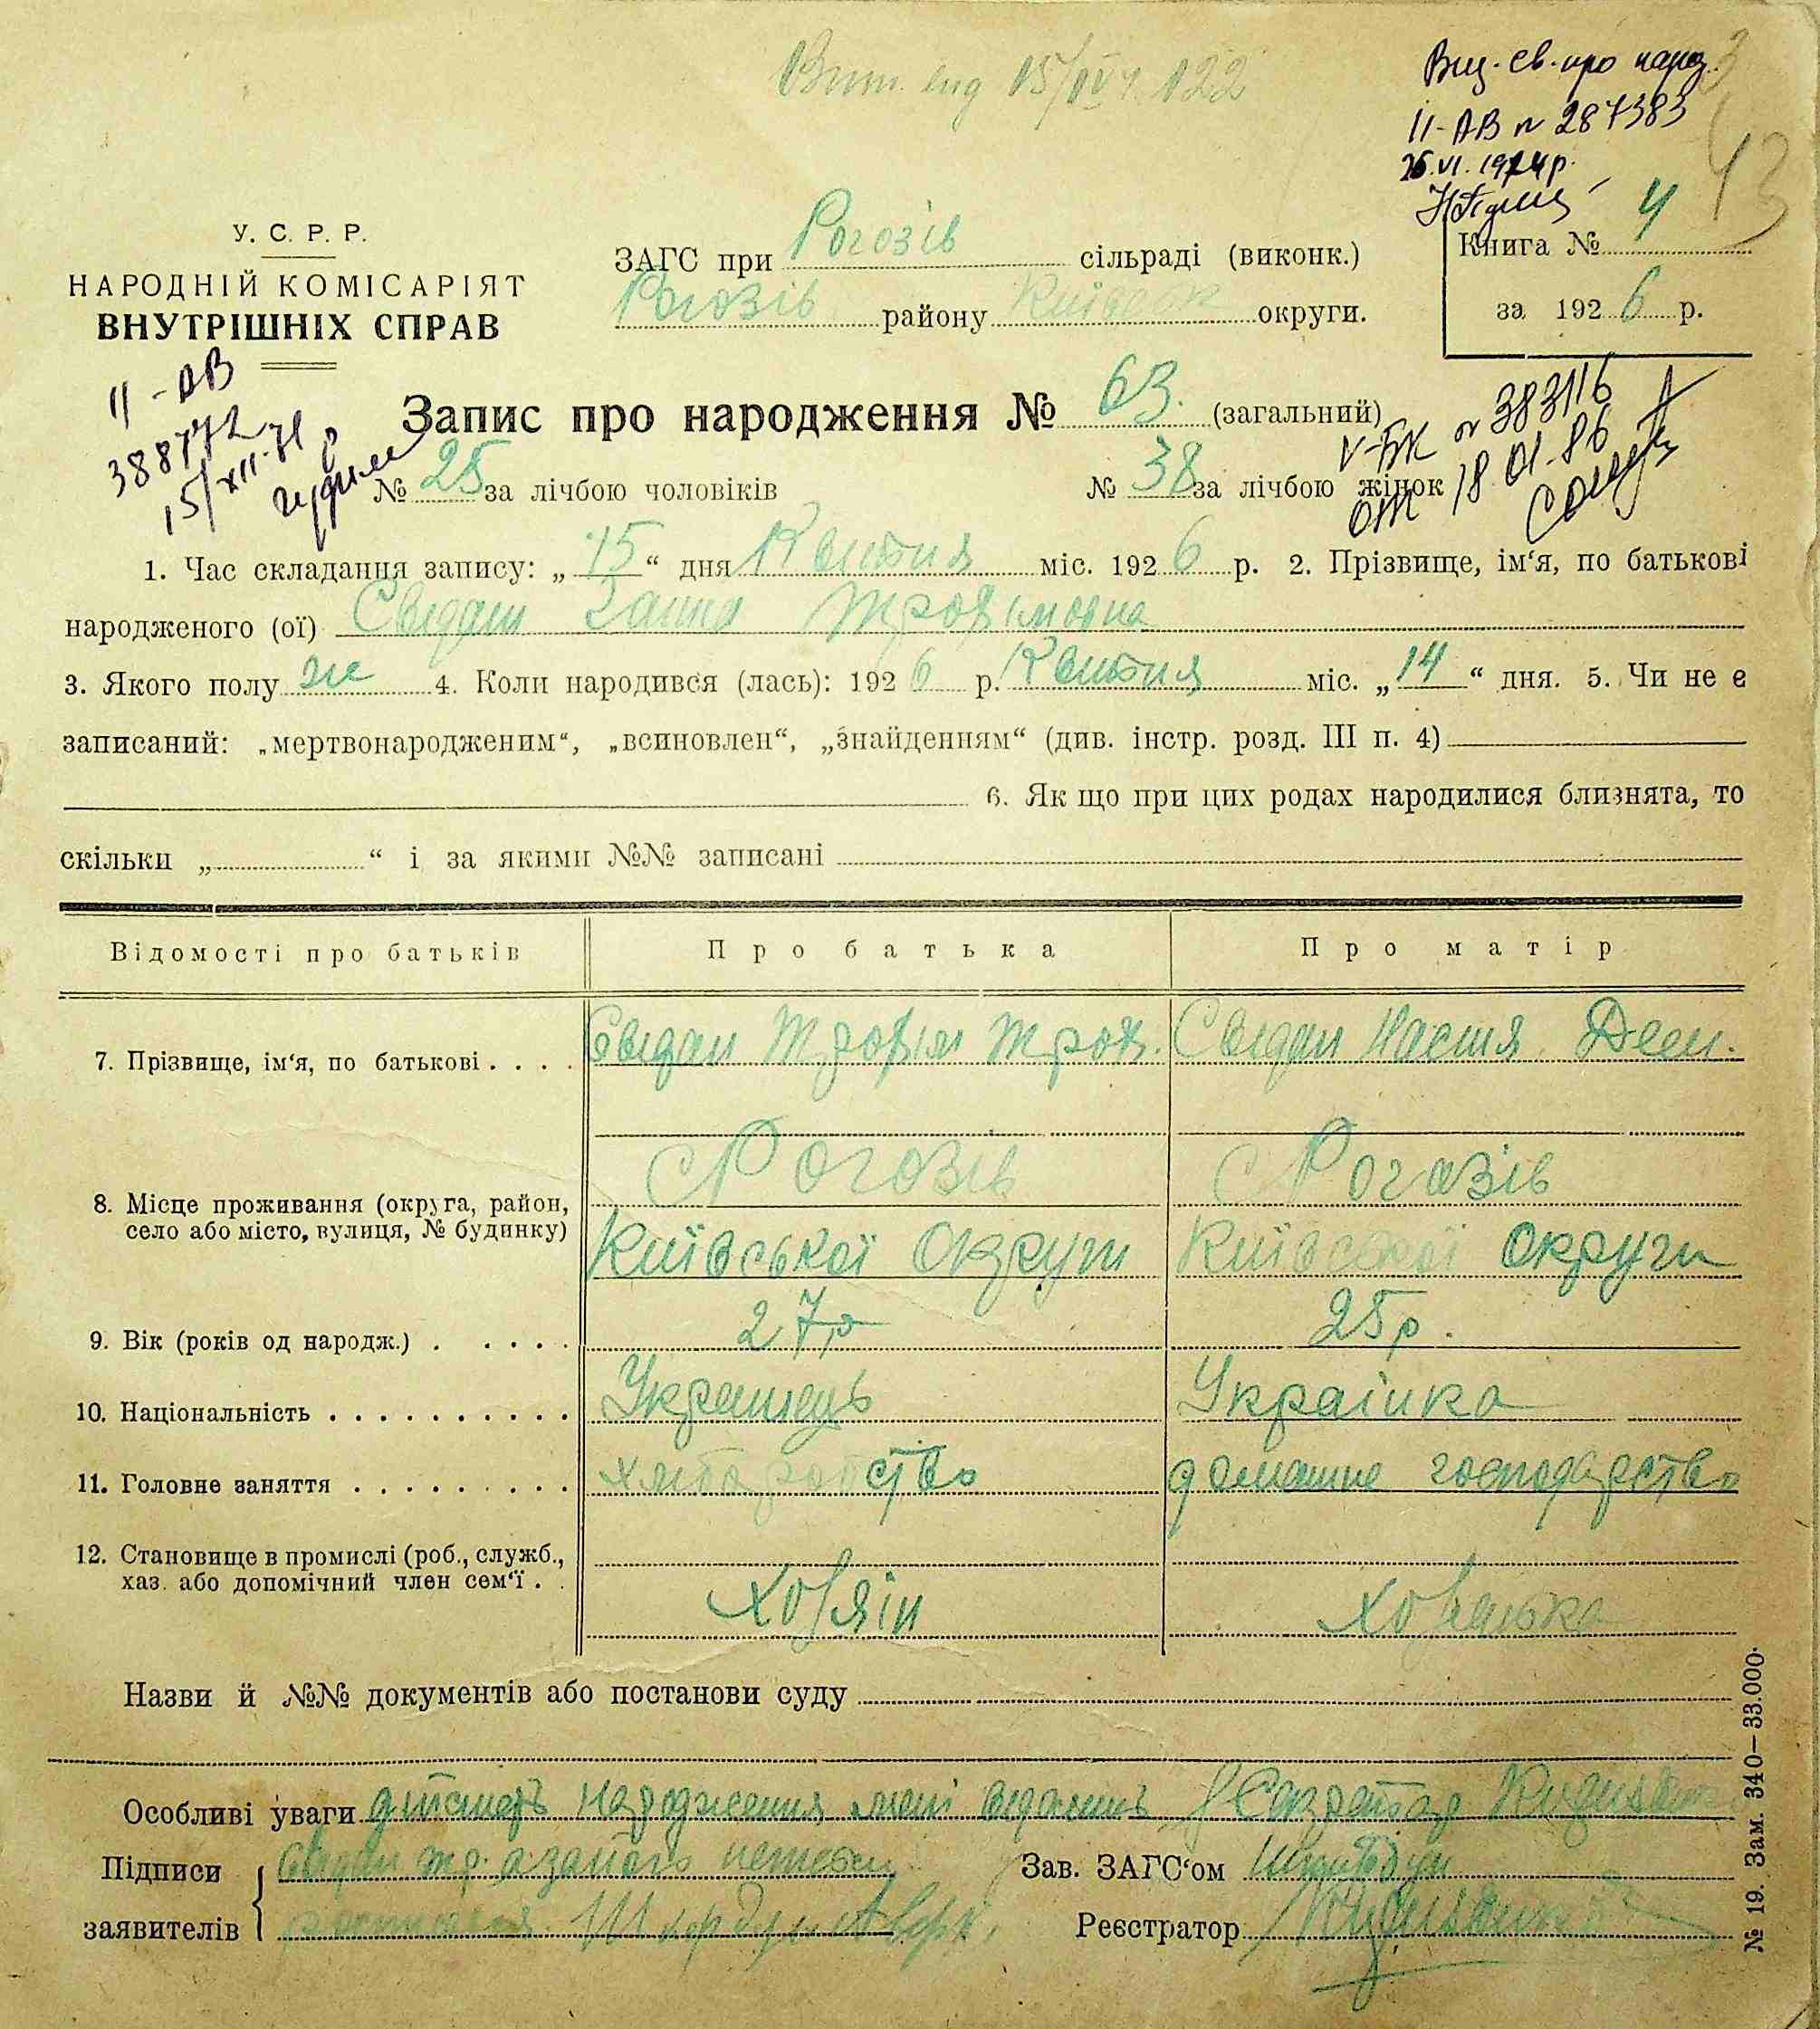 Вит. вид 15/IV р. 122
Вид. св. про народ.
II-АВ № 287383
25.VI.1974р.
43
У. С. Р. Р.
НАРОДНІЙ КОМІСАРІЯТ
ВНУТРІШНІХ СПРАВ
ЗАГС при Рогозів сільраді (виконк.)
Рогозів району Київськ округи.
Книга № 4
за 1926 р.
II-АВ
388772
15/XII-71 р
Запис про народження № 63. (загальний)
V-БК № 383116
18.01.86
№ 25 за лічбою чоловіків № 38 за лічбою жінок
1. Час складання запису: „15“ дня Квітня міс. 1926 р. 2. Прізвище, ім‘я, по батькові
народженого (ої) Свидан Ганна Трофімовна
3. Якого полу ж 4. Коли народився (лась): 1926 р. Квітня міс. „14“ дня. 5. Чи не є
записаний: „мертвонародженим“, „всиновлен“, „знайденням“ (див. інстр. розд. III п. 4)
6. Як що при цих родах народилися близнята, то
скільки „ “ і за якими №№ записані
Відомості про батьків Про батька Про матір
7. Прізвище, ім‘я, по батькові . . . . Свидан Трофім Троф. Свидан Настя Дем.
с Рогозів с Рогозів
8. Місце проживання (округа, район,
село або місто, вулиця, № будинку) Київської Округи Київської Округи
9. Вік (років од народж.) . . . . . 27р 25р.
10. Національність . . . . . . . . . . Українець Українка
11. Головне заняття . . . . . . . . . хліборобство домашне господарство
12. Становище в промислі (роб., служб.,
хаз. або допомічний член сем‘ї . . Хозяін Хозяйка
Назви й №№ документів або постанови суду
Особливі уваги дійсність народження мені відомить Секретар
Підписи Свидан Тр. а за його неписьм.
заявителів
Зав. ЗАГС‘ом
Реєстратор
№ 19. Зам. 340—33.000.